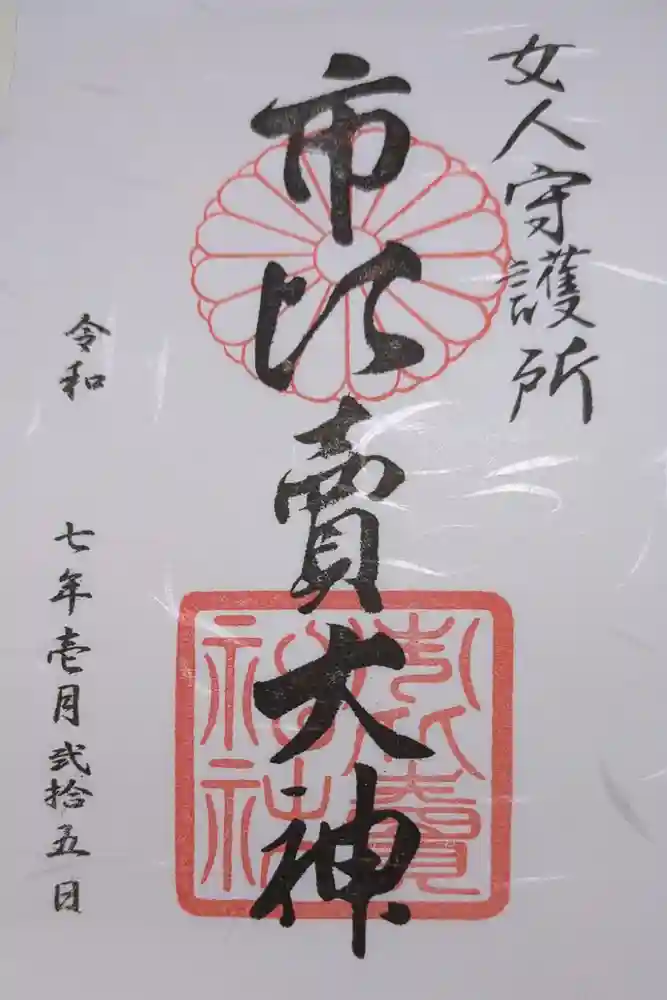 女人守護所
市比賣大神
市比賣神社
令和 七年壱月弐拾五日